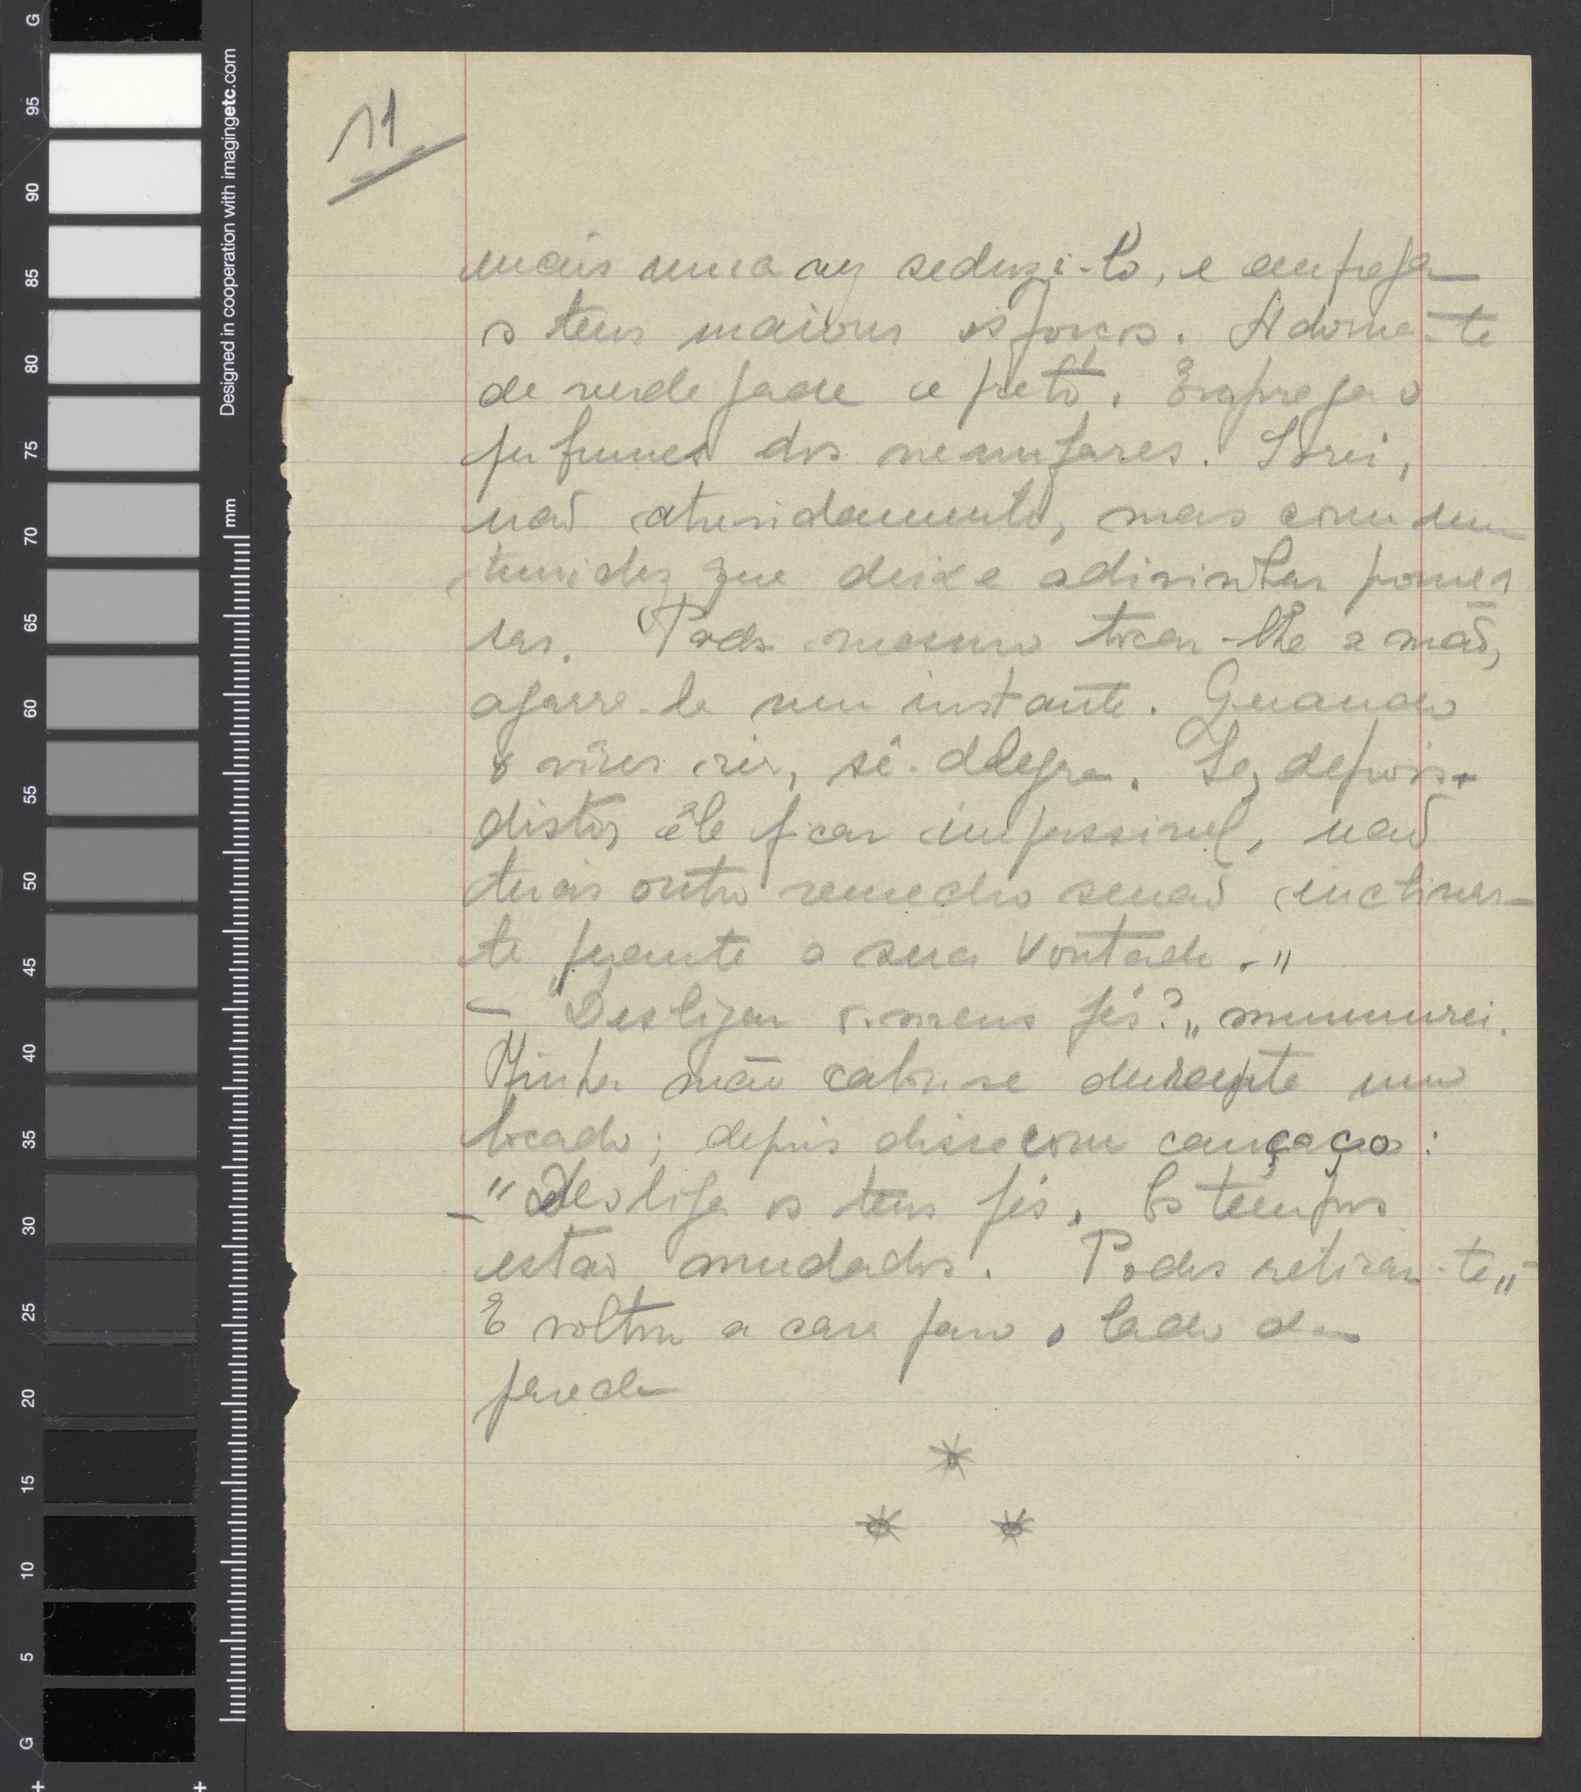 11
mais uma vez seduzi-lo, e emprega
os teus maiores esforços. Adorna-te
de verde jade e preto. Emprega o
perfumes dos nenufares. Sorri,
não atrevidamente, mas com um
timidez que deixe adivinhar promes
sas. Podes mesmo tocar-lhe a mão,
agarra-la um instante. Quando
o vires rir, sê alegre. Se, depois
disto, êle ficar impassivel, não
terás outro remedio senão inclinar-
te perante a sua vontade."
— "Desligar os meus pés?" murmurei.
Minha mãe calou-se durante um
bocado; depois disse com cançaço:
— "Desliga os teus pés. Os tempos
estão mudados. Podes retirar-te"
E voltou a cara para o lado da
parede
G
95
90
85
80
75
70
65
60
55
50
45
40
35
30
25
20
15
10
5
G
Designed in cooperation with imagingetc.com
mm